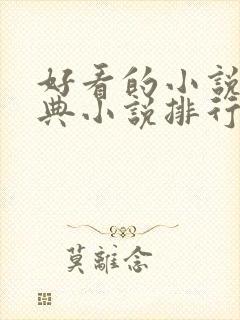 好看的小說
典小說排行
莫離念